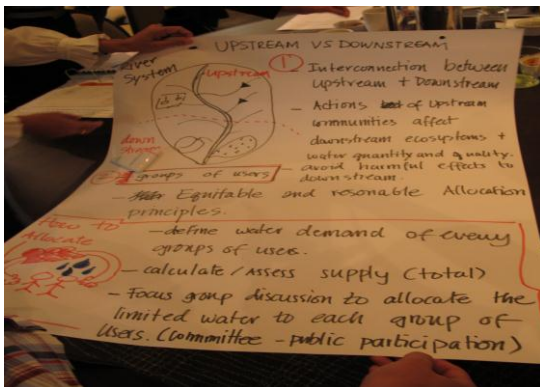 UPSTREAM VS DOWNSTREAM
River
System
Upstream
down
stream
1
- Interconnection between
Upstream + Downstream
- Actions of Upstream
communities affect
downstream ecosystems +
water quantity and quality.
- avoid harmful effects to
downstream.
2 groups of users
- Equitable and resonable Allocation
principles.
How to
Allocate
- define water demand of every
groups of users.
- calculate/Assess supply (total)
- Focus group discussion to allocate the
limited water to each group of
Users. (Committee - public participation)